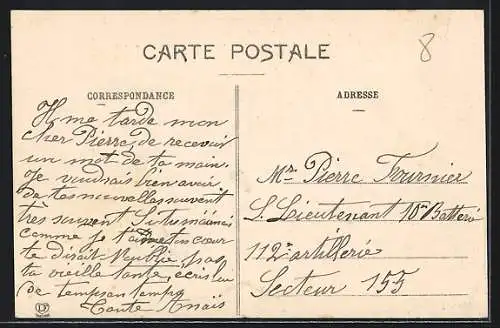 CARTE POSTALE
8
CORRESPONDANCE
ADRESSE
Il me tarde mon
cher Pierre, de recevoir
un mot de ta main.
Je voudrais bien avoir
de tes nouvelles souvent
très souvent Si tu m'aimais
comme je t'aime ton cœur
te disait N'oublie pas
ta vieille tante, écris lui
de temps en temps
Tante Anaïs
Mr Pierre Fournier
S. Lieutenant 10e Batterie
112e artillerie
Secteur 155